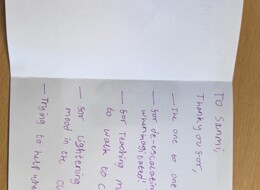 To Sanmi,
Thank you for,
- The one to one
- for de-escalating
when
- for teaching m
to walk to c
- for lightening
mood in the cl
- Trying to help